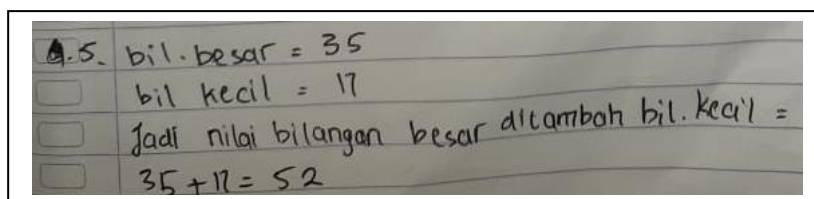 5. bil. besar = 35
bil kecil = 17
Jadi nilai bilangan besar ditambah bil. kecil =
35 + 17 = 52